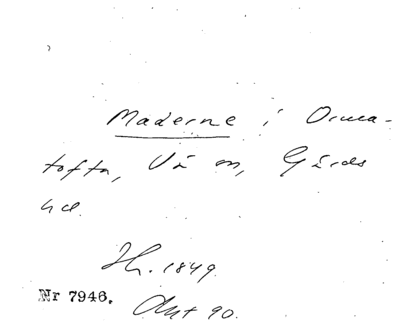 Maderne i Orma-
tofta, Vä sn, Gärds
hd.
Hr. 1849.
Nr 7946.
Akt 90.